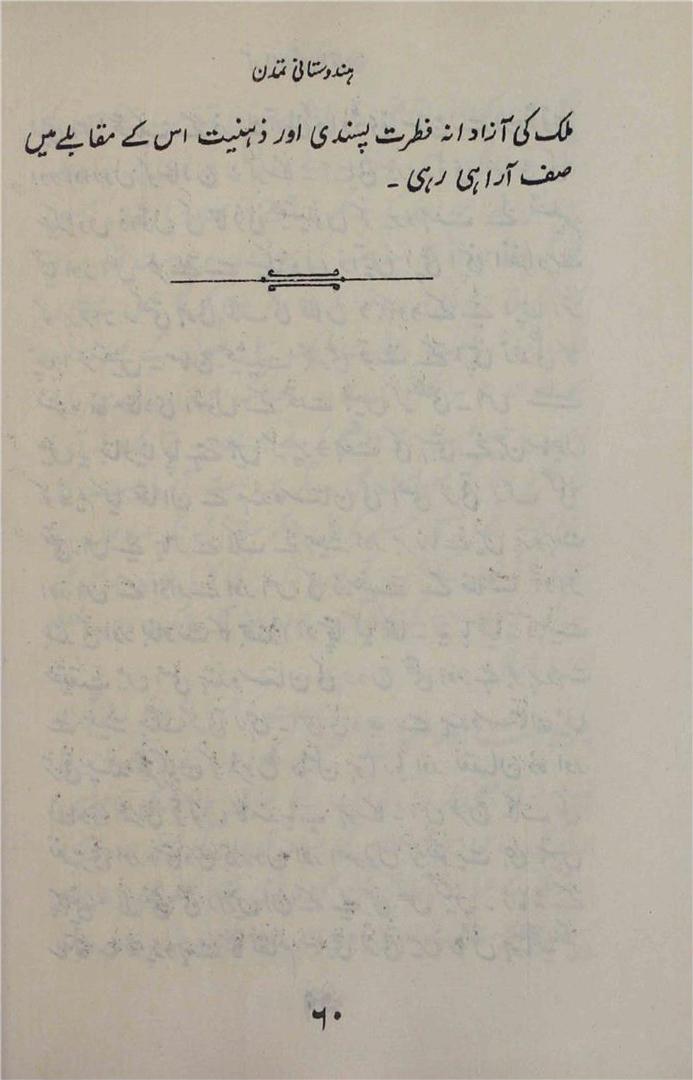 ہندوستانی تمدن
ملک کی آزادانہ فطرت پسندی اور ذہنیت اس کے مقابلے میں
صف آرا ہی رہی ۔
۶۰